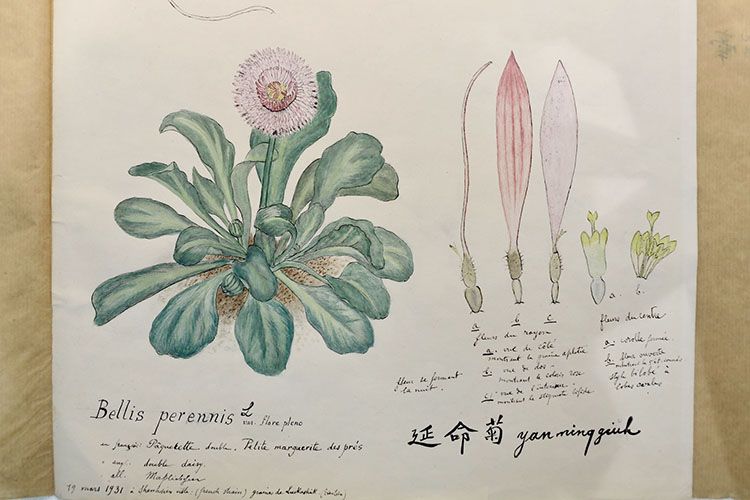 a
b
c
fleurs du rayon
a. vue de côté
montrant la graine aplatie
b. vue de dos
montrant le coloris rose
c. vue de l'intérieur
montrant le stigmate bifide
a. b.
fleurs du centre
a. corolle fermée.
b. fleur ouverte
style bilobé à
fleur se fermant
la nuit.
Bellis perennis L
var. flore pleno
en français: Pâquerette double. Petite marguerite des prés
" angl. double daisy.
" all.
19 mars 1931 à (french strain) graine de
延命菊 yan ming giuh